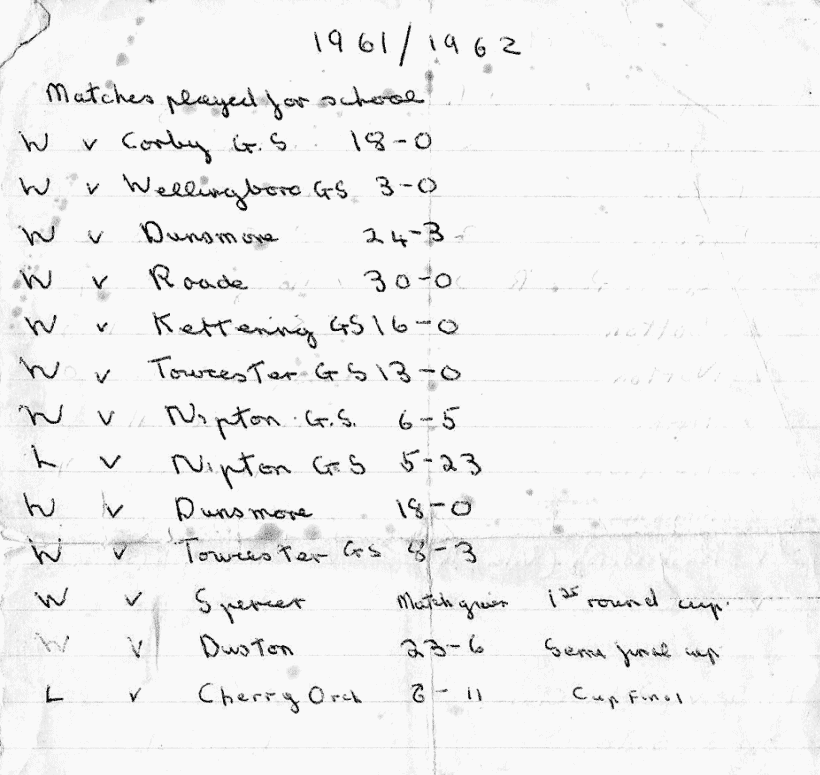 1961/1962
Matches played for school
W v Corby G.S 18-0
W v Wellingboro GS 3-0
W v Dunsmore 24-3
W v Roade 30-0
W v Kettering GS 16-0
W v Towcester GS 13-0
W v N'pton G.S. 6-5
L v N'pton GS 5-23
W v Dunsmore 18-0
W v Towcester GS 8-3
W v Spencer Match given 1st round cup.
W v Duston 23-6 Semi final cup
L v Cherry Orch 8-11 Cup Final